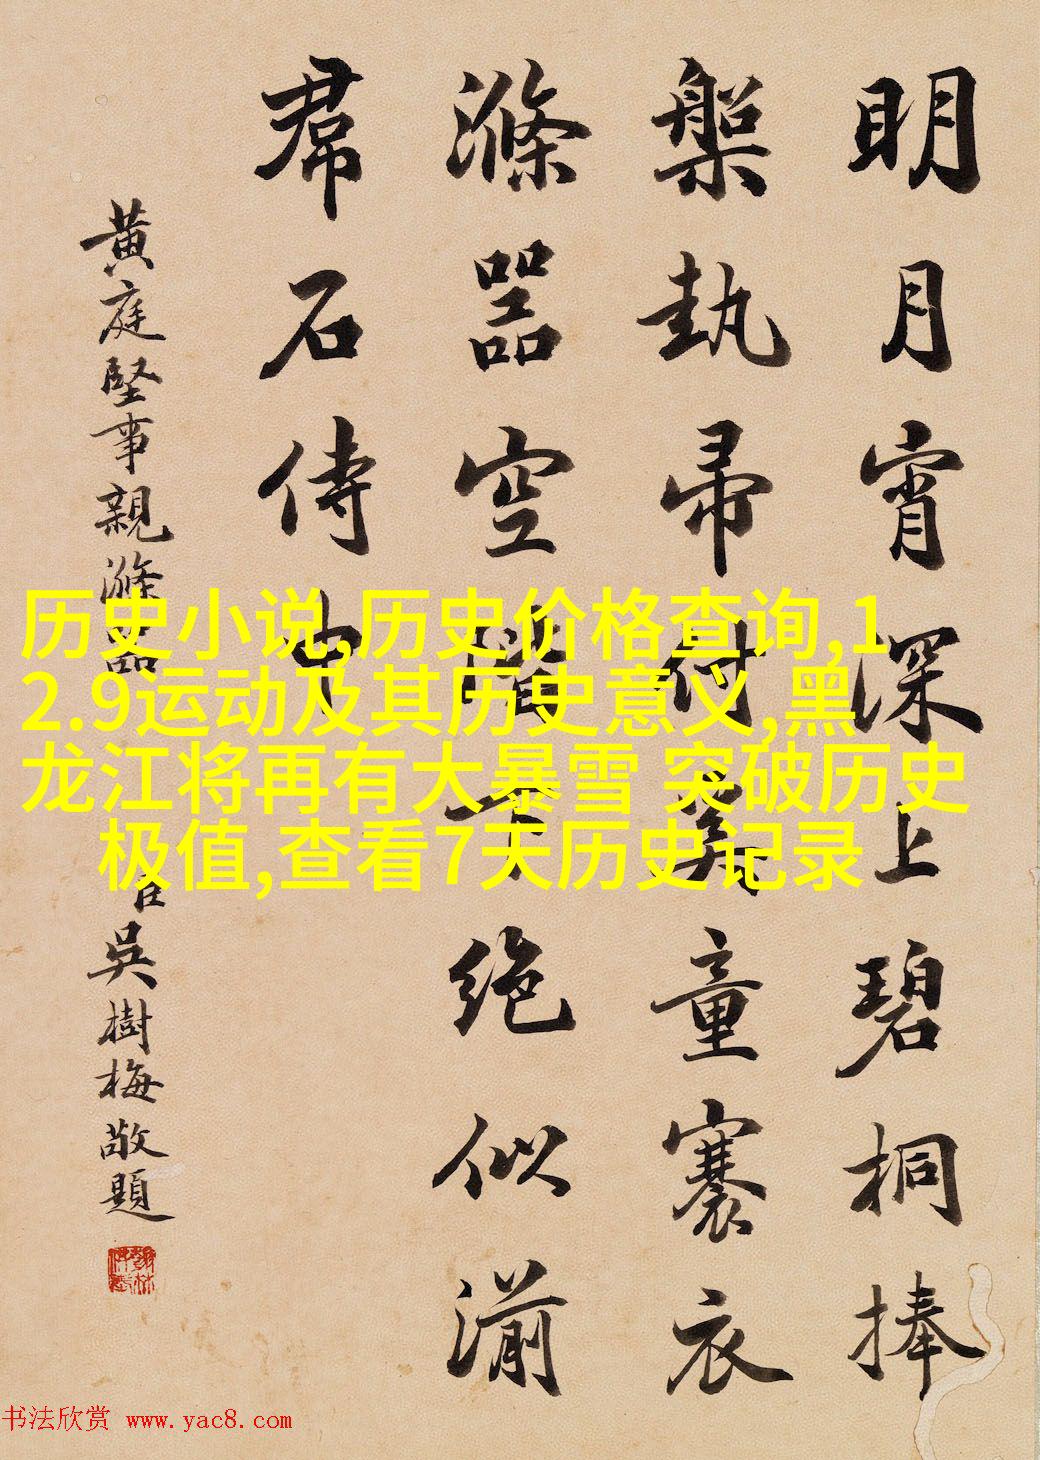 明月宵深上碧桐捧
槃執帚付美童褰衣
滌器空階下絶似湔
帬石侍中
黃庭堅事親滌器
臣吳樹梅敬題
历史小说,历史价格查询,1
2.9运动及其历史意义,黑
龙江将再有大暴雪 突破历史
极值,查看7天历史记录
书法欣赏 www.yac8.com